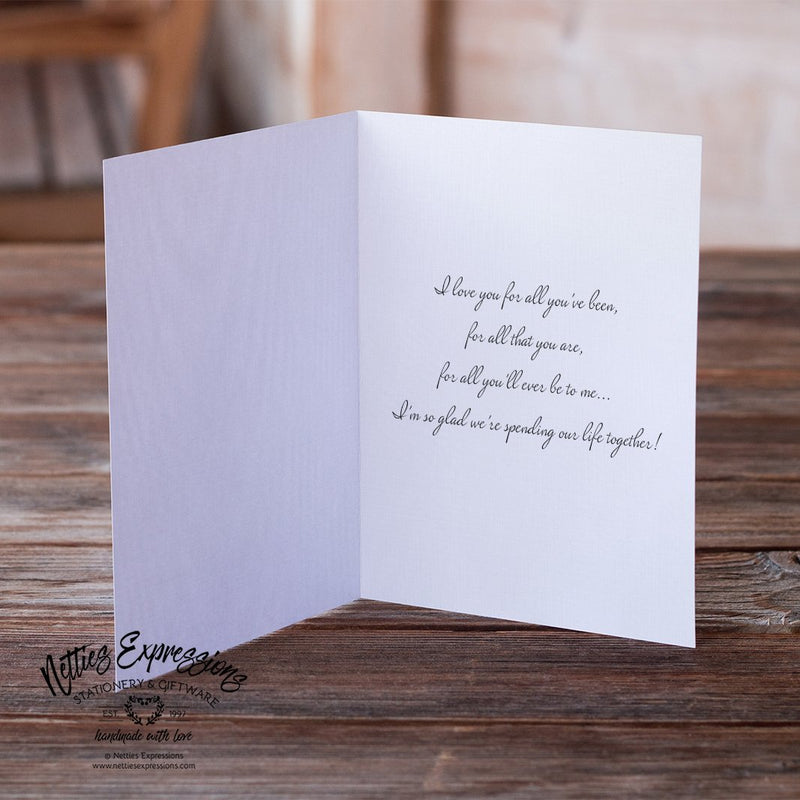 I love you for all you've been,
for all that you are,
for all you'll ever be to me...
I'm so glad we're spending our life together!
Netties Expressions
STATIONERY & GIFTWARE
EST. 1997
handmade with love
© Netties Expressions
www.nettiesexpressions.com